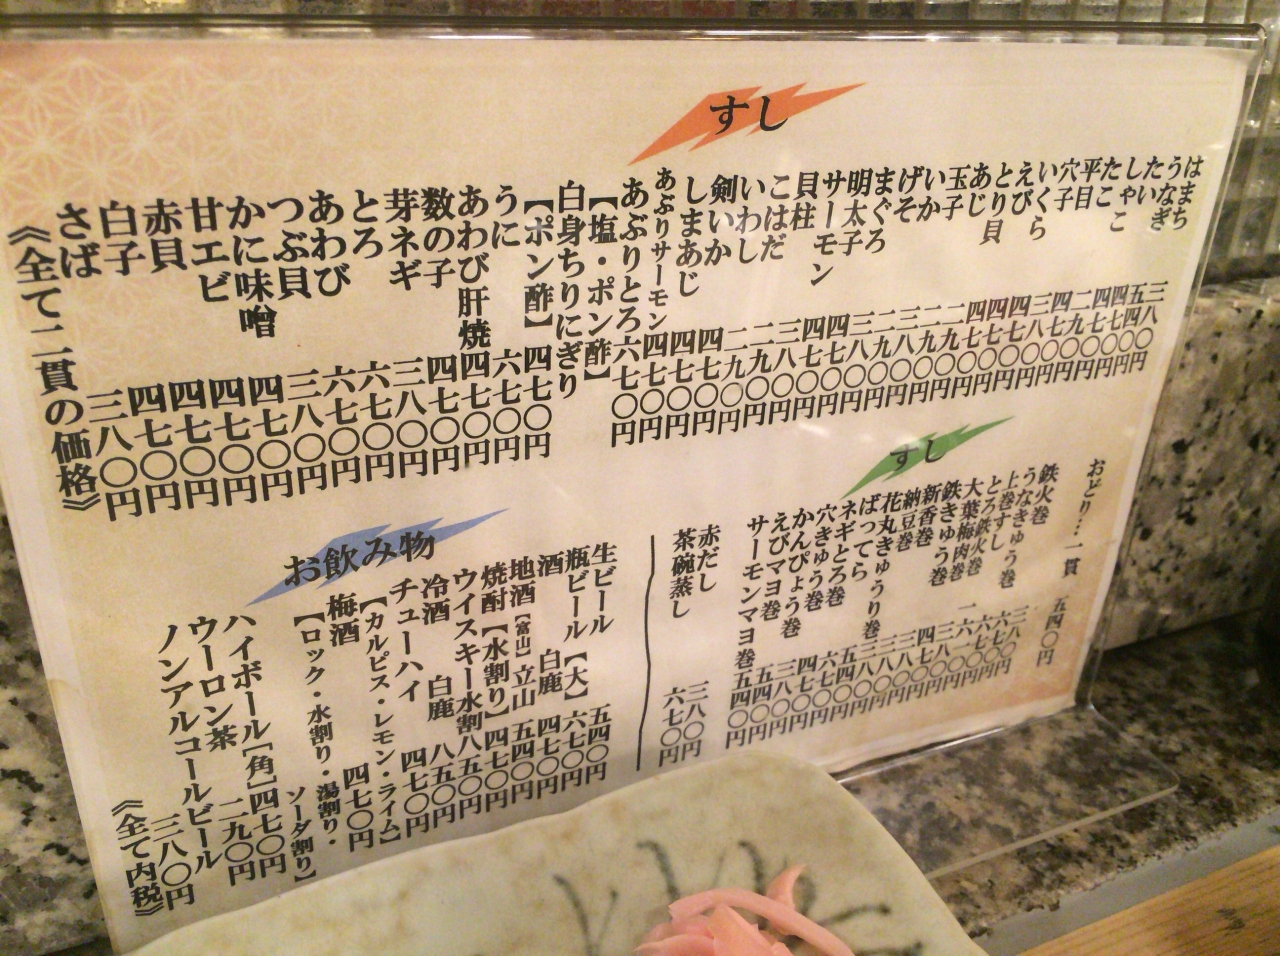 すし
はまち 三八〇円
うなぎ 五四〇円
たい 四七〇円
しゃこ 四七〇円
たこ 二九〇円
平目 四七〇円
穴子 三八〇円
いくら 四七〇円
えび 四七〇円
とり貝 四七〇円
あじ 二九〇円
玉子 二九〇円
いか 三八〇円
げそ 二九〇円
まぐろ 三八〇円
明太子 四七〇円
サーモン 四七〇円
貝柱 三八〇円
こはだ 二九〇円
いわし 二九〇円
剣いか 四七〇円
しまあじ 四七〇円
あぶりサーモン 四七〇円
あぶりとろ 六七〇円
【塩・ポン酢】
白身ちりにぎり
【ポン酢】 四七〇円
うに 六七〇円
あわび肝焼 四七〇円
数の子 四七〇円
芽ネギ 三八〇円
とろ 六七〇円
あわび 六七〇円
つぶ貝 三八〇円
かに味噌 四七〇円
甘エビ 四七〇円
赤貝 四七〇円
白子 四七〇円
さば 三八〇円
《全て二貫の価格》
すし
おどり…一貫 五四〇円
鉄火巻 三八〇円
うなきゅう巻 六七〇円
上巻すし 六七〇円
とろ鉄火巻
大葉梅肉巻 三八〇円
鉄きゅう巻 四七〇円
新香巻 三八〇円
納豆巻 三八〇円
花丸きゅうり巻 三八〇円
ばってら 五四〇円
ネギとろ巻 六七〇円
穴きゅう巻 四七〇円
かんぴょう巻 三八〇円
えびマヨ巻 五四〇円
サーモンマヨ巻 五四〇円
赤だし 三八〇円
茶碗蒸し 六七〇円
お飲み物
生ビール 五四〇円
瓶ビール【大】 六七〇円
酒 白鹿 四七〇円
地酒【富山】立山 五四〇円
焼酎【水割り】 四七〇円
ウイスキー水割 八五〇円
冷酒 白鹿 八五〇円
チューハイ 四七〇円
【カルピス・レモン・ライム】
梅酒 四七〇円
【ロック・水割り・湯割り・
ソーダ割り】
ハイボール【角】 四七〇円
ウーロン茶 二九〇円
ノンアルコールビール 三八〇円
《全て内税》